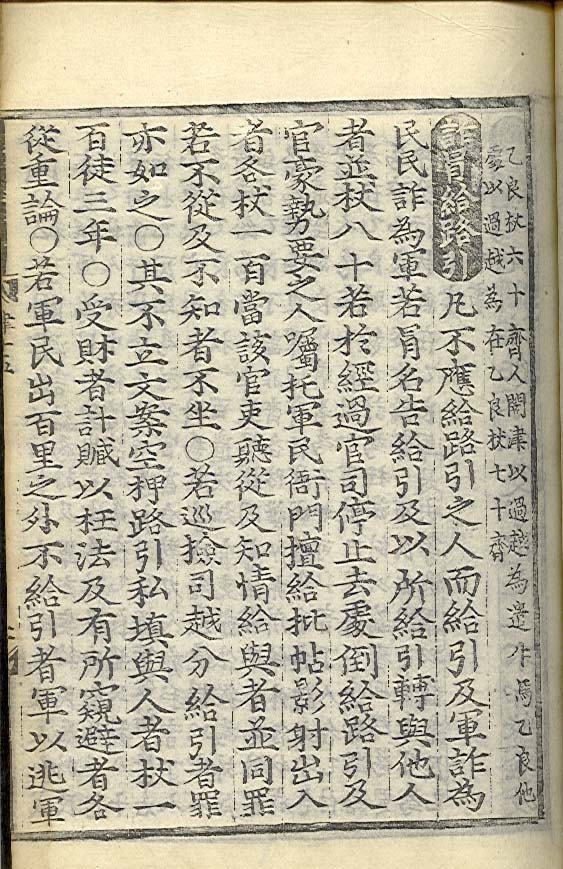 乙良杖六十齊人關津以過越為遣作馬乙良他
處以過越為在乙良杖七十齊
詐冒給路引 凡不應給路引之人而給引及軍詐為
民民詐為軍若冒名告給引及以所給引轉與他人
者並杖八十若於經過官司停止去處倒給路引及
官豪勢要之人囑托軍民衙門擅給批帖影射出入
者各杖一百當該官吏聽從及知情給與者並同罪
若不從及不知者不坐○若巡撿司越分給引者罪
亦如之○其不立文案空押路引私填與人者杖一
百徒三年○受財者計贓以枉法及有所窺避者各
從重論○若軍民出百里之外不給引者軍以逃軍